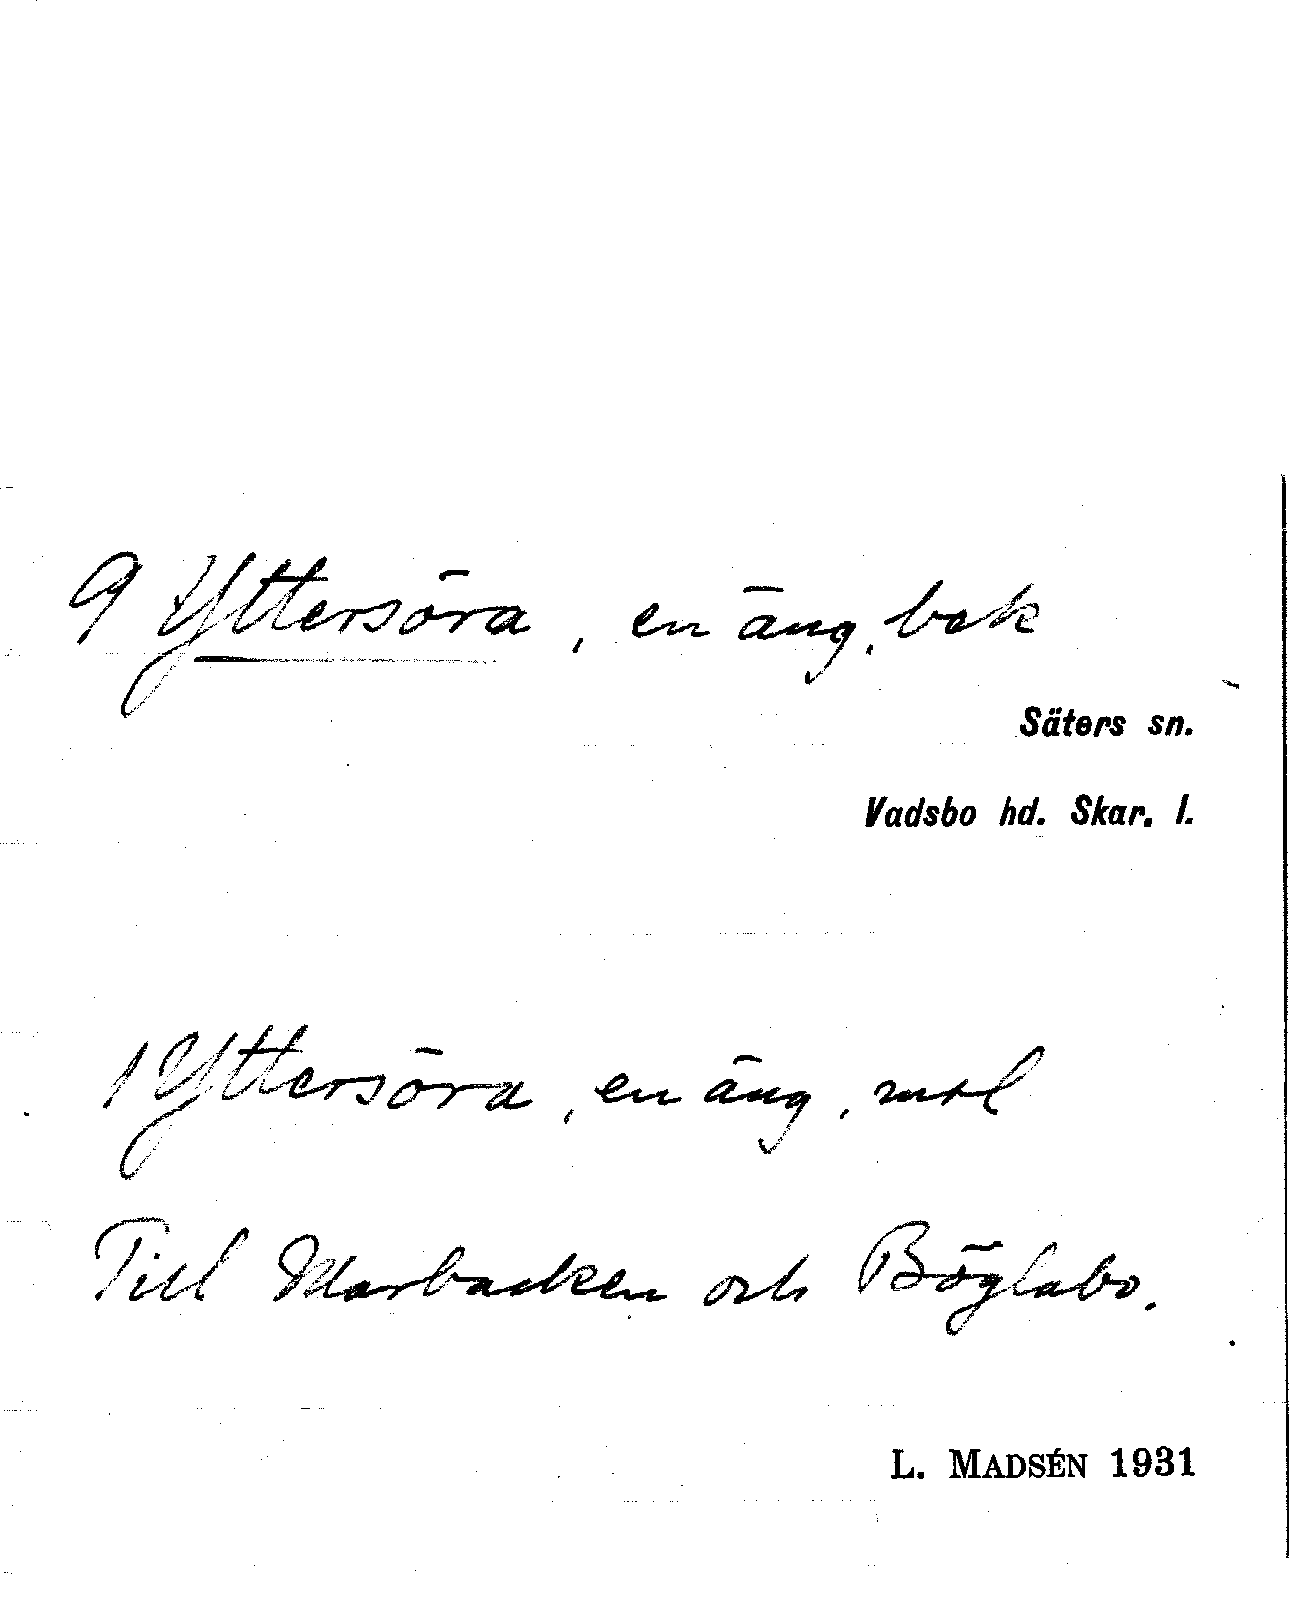 9 Yttersöra, en äng, bek
Säters sn.
Vadsbo hd. Skar. l.
1 Yttersöra, en äng, mtl
Till Marbacken och Böglabo.
L. MADSÉN 1931